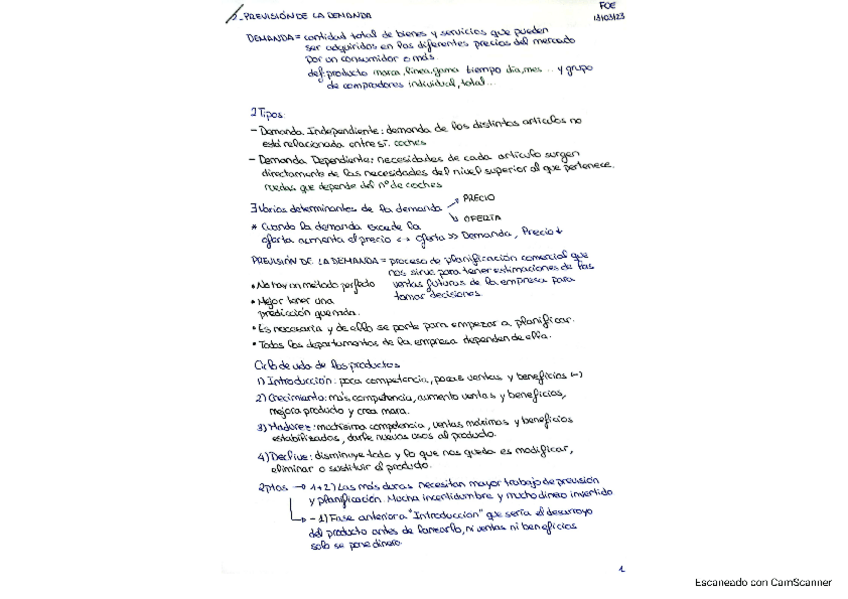 2_PREVISIÓN DE LA DEMANDA
FOE
13/03/23
DEMANDA = cantidad total de bienes y servicios que pueden
ser adquiridos en los diferentes precios del mercado
por un consumidor o más.
def: producto marca, línea, gama tiempo día, mes ... y grupo
de compradores individual, total ...
2 Tipos:
- Demanda Independiente: demanda de los distintos artículos no
está relacionada entre sí. coches
- Demanda Dependiente: necesidades de cada artículo surgen
directamente de las necesidades del nivel superior al que pertenece.
ruedas que depende del nº de coches
∃ Varios determinantes de la demanda → PRECIO
↘ OFERTA
* Cuando la demanda excede la
oferta aumenta el precio ↔ Oferta >> Demanda, Precio ↓
PREVISIÓN DE LA DEMANDA = proceso de planificación comercial que
nos sirve para tener estimaciones de las
ventas futuras de la empresa para
tomar decisiones.
• No hay un método perfecto
• Mejor tener una
predicción que nada.
• Es necesaria y de ello se parte para empezar a planificar.
• Todos los departamentos de la empresa dependen de ella.
Ciclo de vida de los productos
1) Introducción: poca competencia, pocas ventas y beneficios (-)
2) Crecimiento: más competencia, aumento ventas y beneficios,
mejora producto y crea marca.
3) Madurez: muchísima competencia, ventas máximas y beneficios
estabilizados, darle nuevos usos al producto.
4) Declive: disminuye todo y lo que nos queda es modificar,
eliminar o sustituir el producto.
2 ptos → 1+2) Las más duras necesitan mayor trabajo de previsión
y planificación. Mucha incertidumbre y mucho dinero invertido
→ - 1) Fase anterior a "Introducción" que sería el desarroyo
del producto antes de lanzarlo, ni ventas ni beneficios
solo se pone dinero.
1
Escaneado con CamScanner